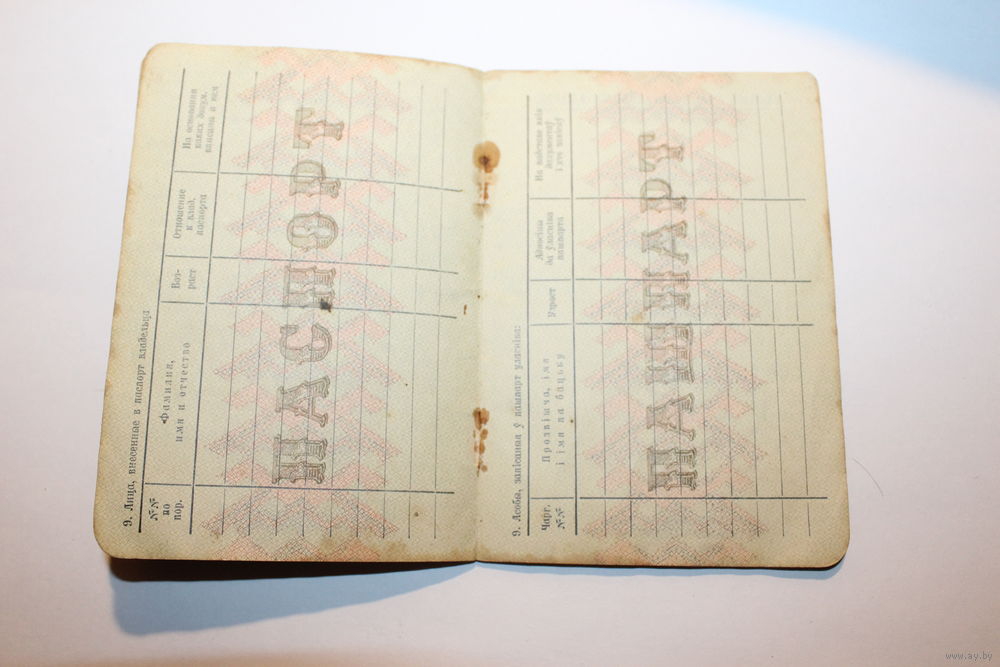 9. Лица, внесенные в паспорт владельца
№№
по
пор.
Фамилия,
имя и отчество
Воз-
раст
Отношение
к влад.
паспорта
На основании
каких докум.
внесены и кем
ПАСПОРТ
9. Асобы, запісаныя ў пашпарт уласніка:
Чарг.
№№
Прозвішча, імя
і імя па бацьку
Узрост
Адносіны
да ўласніка
пашпарта
На падставе якіх
дакументаў
і кім
ПАШПАРТ
www.ay.by